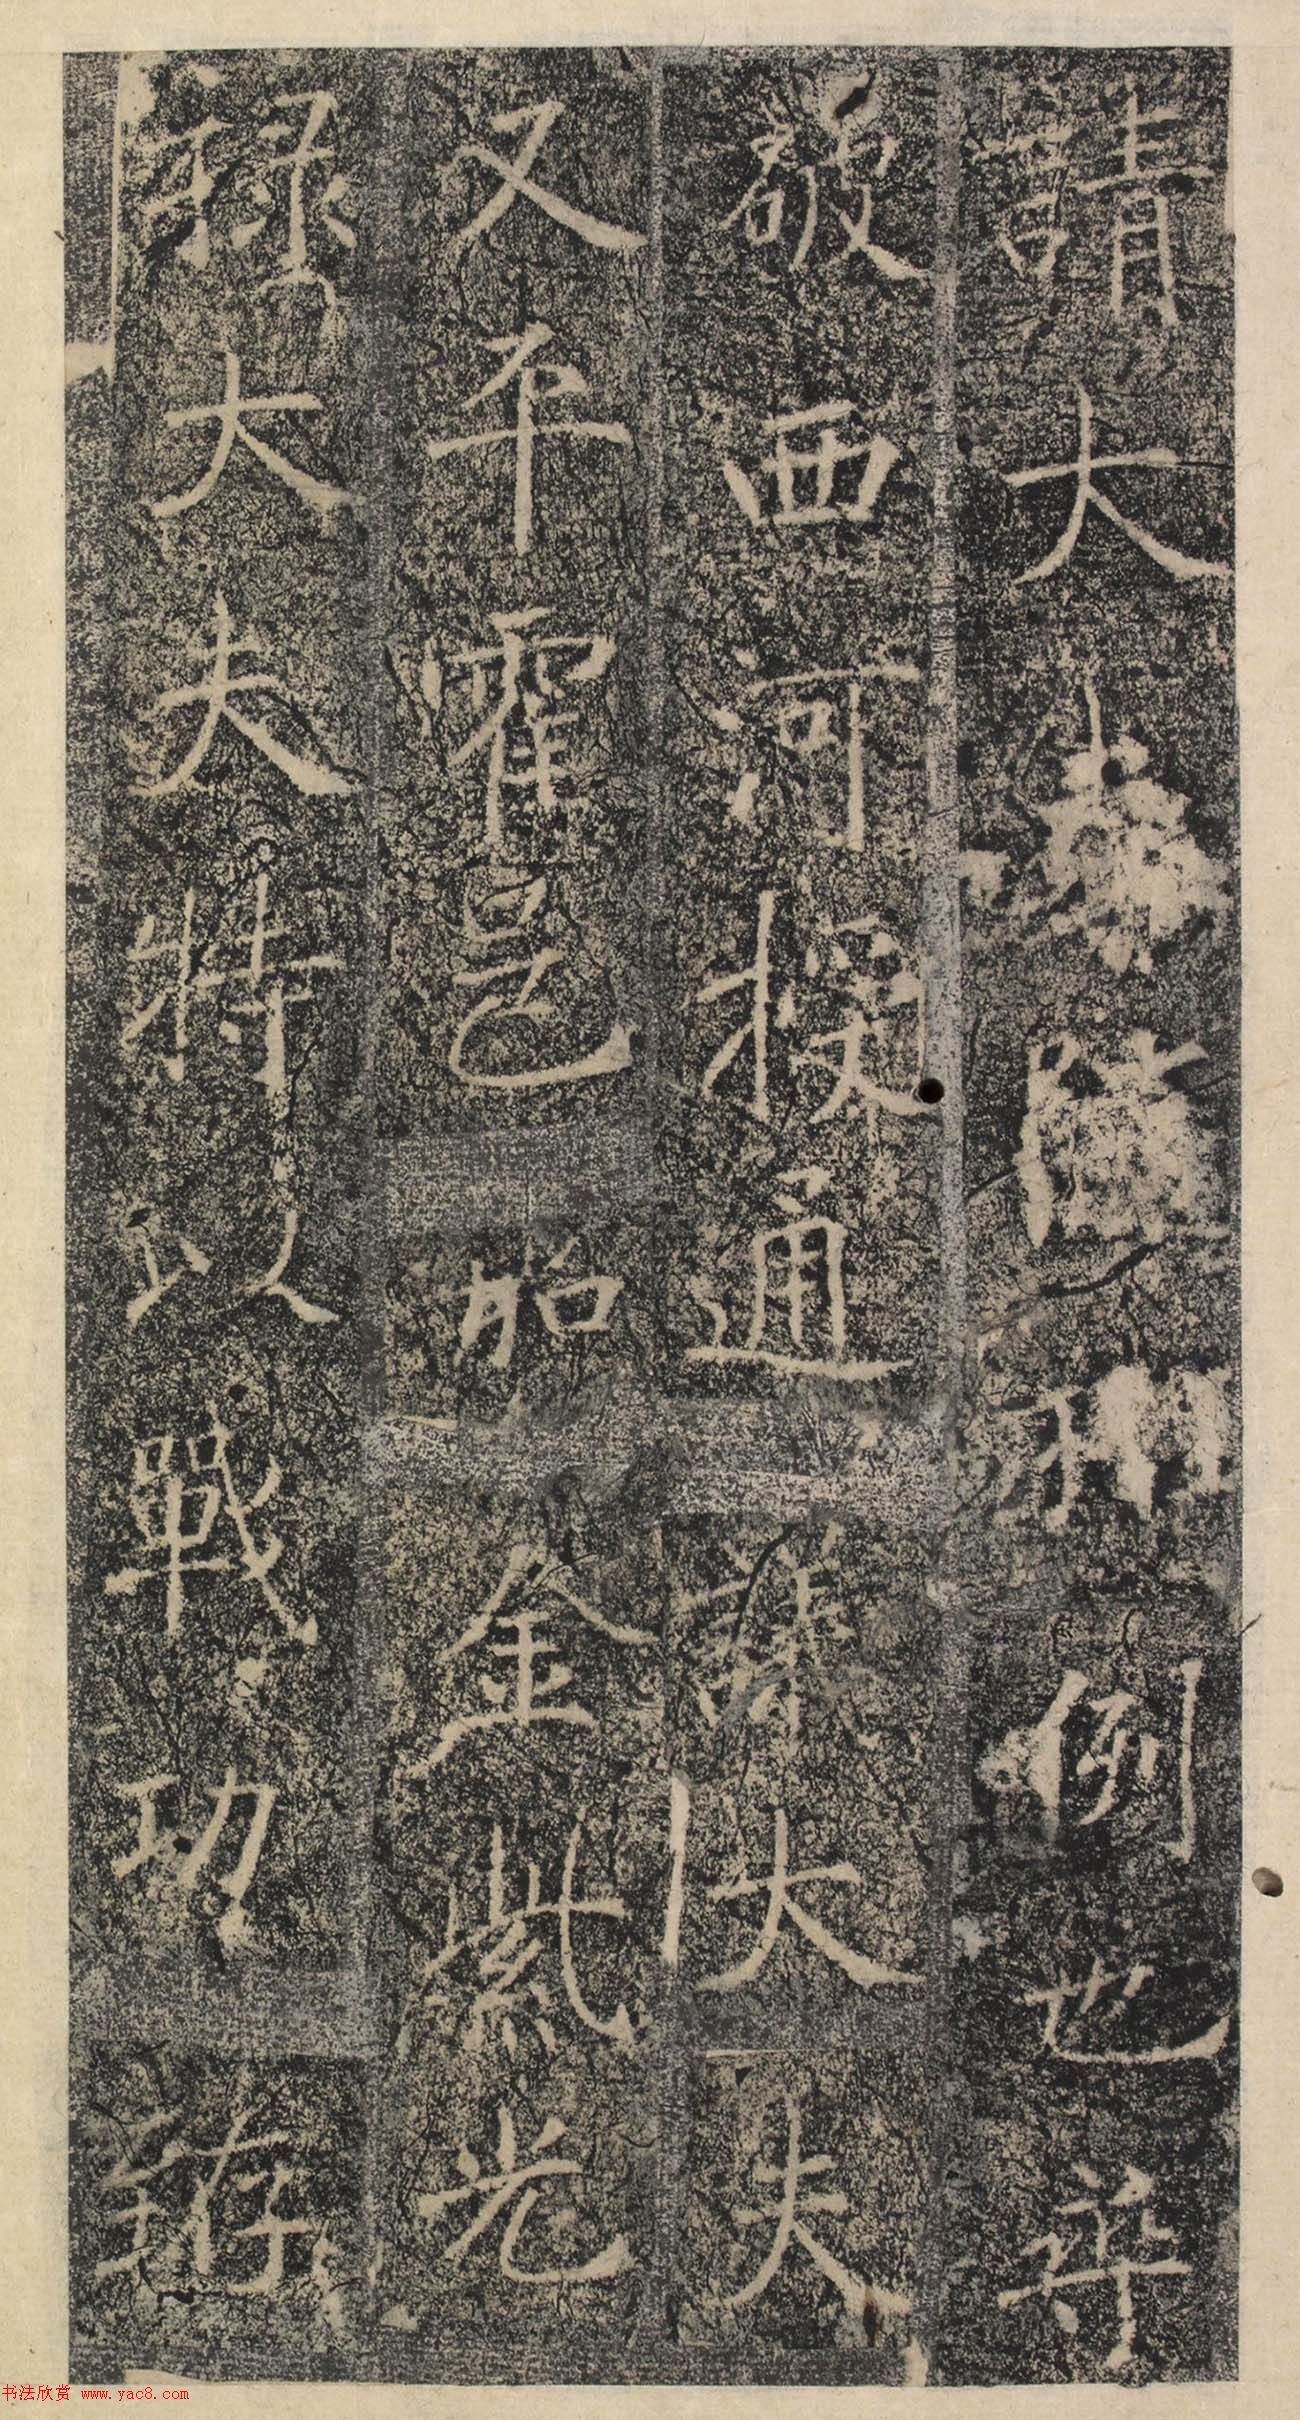 請大例也尋
破西河授通議大夫
又平霍邑加金紫光
祿大夫特以戰功
书法欣赏 www.yac8.com